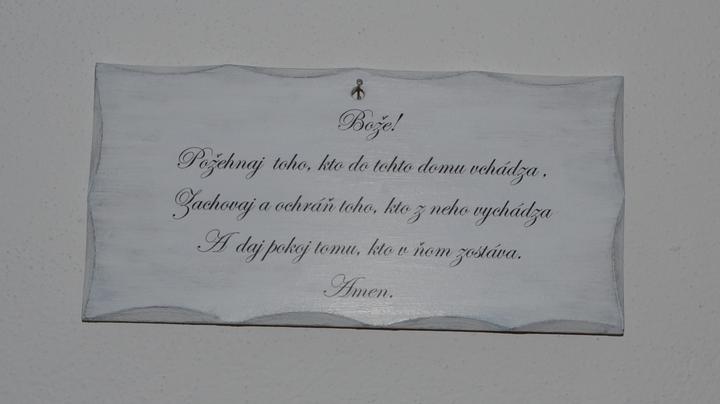 Bože!
Požehnaj toho, kto do tohto domu vchádza.
Zachovaj a ochráň toho, kto z neho vychádza
A daj pokoj tomu, kto v ňom zostáva.
Amen.